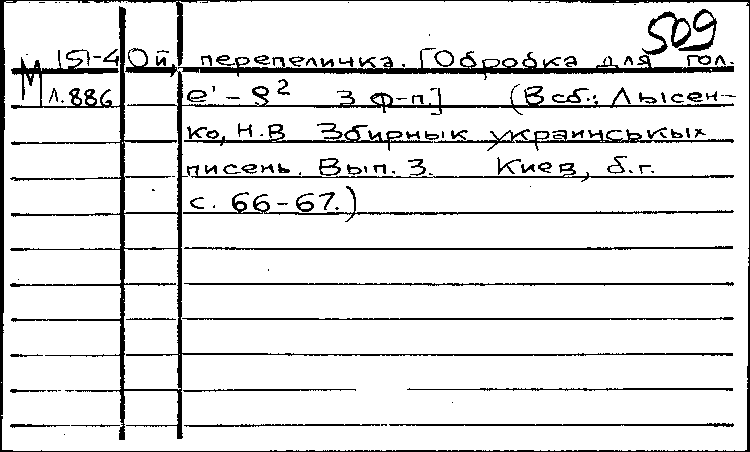 509
М 151-4 Ой, перепеличка. [Обробка для гол.
Л.886 е' – g² З ф-п.] (В сб.: Лысен-
ко, Н.В Збирнык украинськых
писень. Вып. 3. Киев, б.г.
с. 66-67.)